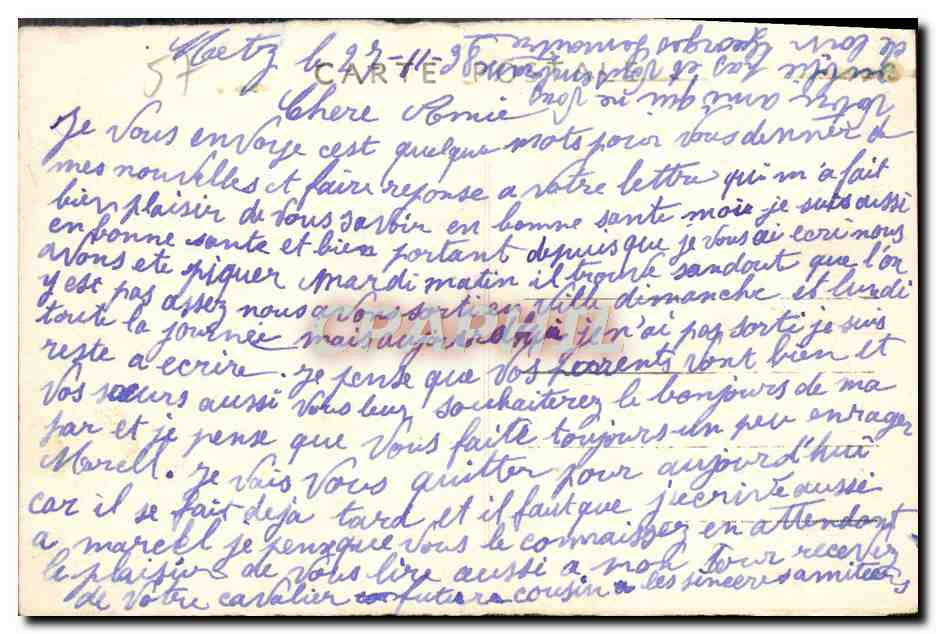 Metz le 27-11-38
57
CARTE POSTALE
Chere Amie
Je vous envoye cest quelque mots pour vous denner de
mes nouvelles et faire reponse a votre lettre qui m'a fait
bien plaisir de vous savoir en bonne sante moi je suis aussi
en bonne sante et bien portant depuis que je vous ai ecri nous
avons ete piquer mardi matin il trouve sandout que l'on
y est pas assez nous avons sorti en ville dimanche et lundi
toute la journée mais aujourd'hui je n'ai pas sorti je suis
reste a ecrire. Je pense que vos parents vont bien et
vos sœurs aussi vous leur souhaiterez le bonjours de ma
par et je pense que vous faite toujours un peu enrager
Marcel. Je vais vous quitter pour aujourd'hui
car il se fait deja tard et il faut que j'ecrive aussi
a marcel je pense que vous le connaissez en attendant
le plaisir de vous lire aussi a mon tour recevez
de votre cavalier future cousin les sincere amitiers
CPARAMA